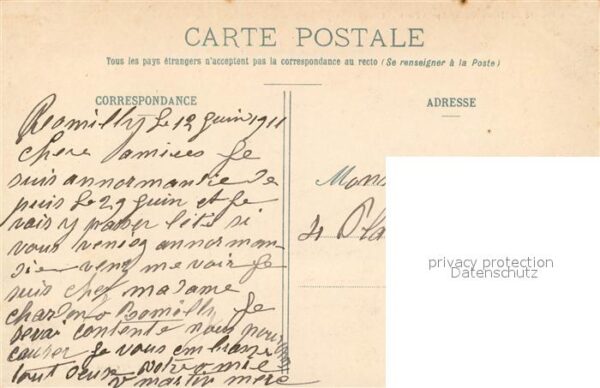 CARTE POSTALE
Tous les pays étrangers n'acceptent pas la correspondance au recto (Se renseigner à la Poste)
CORRESPONDANCE
ADRESSE
Romilly le 12 juin 1911
chere amiees Je
suis annormandie de
puis le 29 juin et Je
vais y passer lété si
vous venioz annorman
die venez me voir Je
suis chez madame
Romilly Je
serai contente nous pourons
causer Je vous embrasse
tout deux votre amie
v martin mère
Mons
4 Pla
privacy protection
Datenschutz